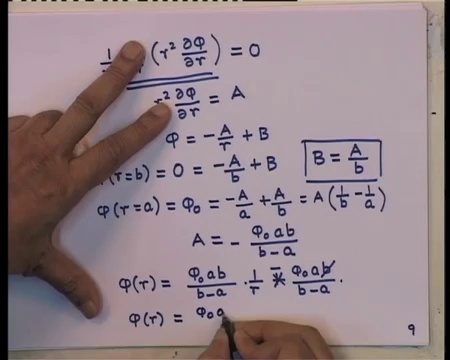 1 (r² ∂Φ/∂r) = 0
r² ∂Φ/∂r = A
Φ = -A/r + B
φ(r=b) = 0 = -A/b + B   B = A/b
φ(r=a) = Φ₀ = -A/a + A/b = A(1/b - 1/a)
A = - Φ₀ab/(b-a)
φ(r) = Φ₀ab/(b-a) · 1/r - Φ₀a/(b-a) .
φ(r) = Φ₀a
9